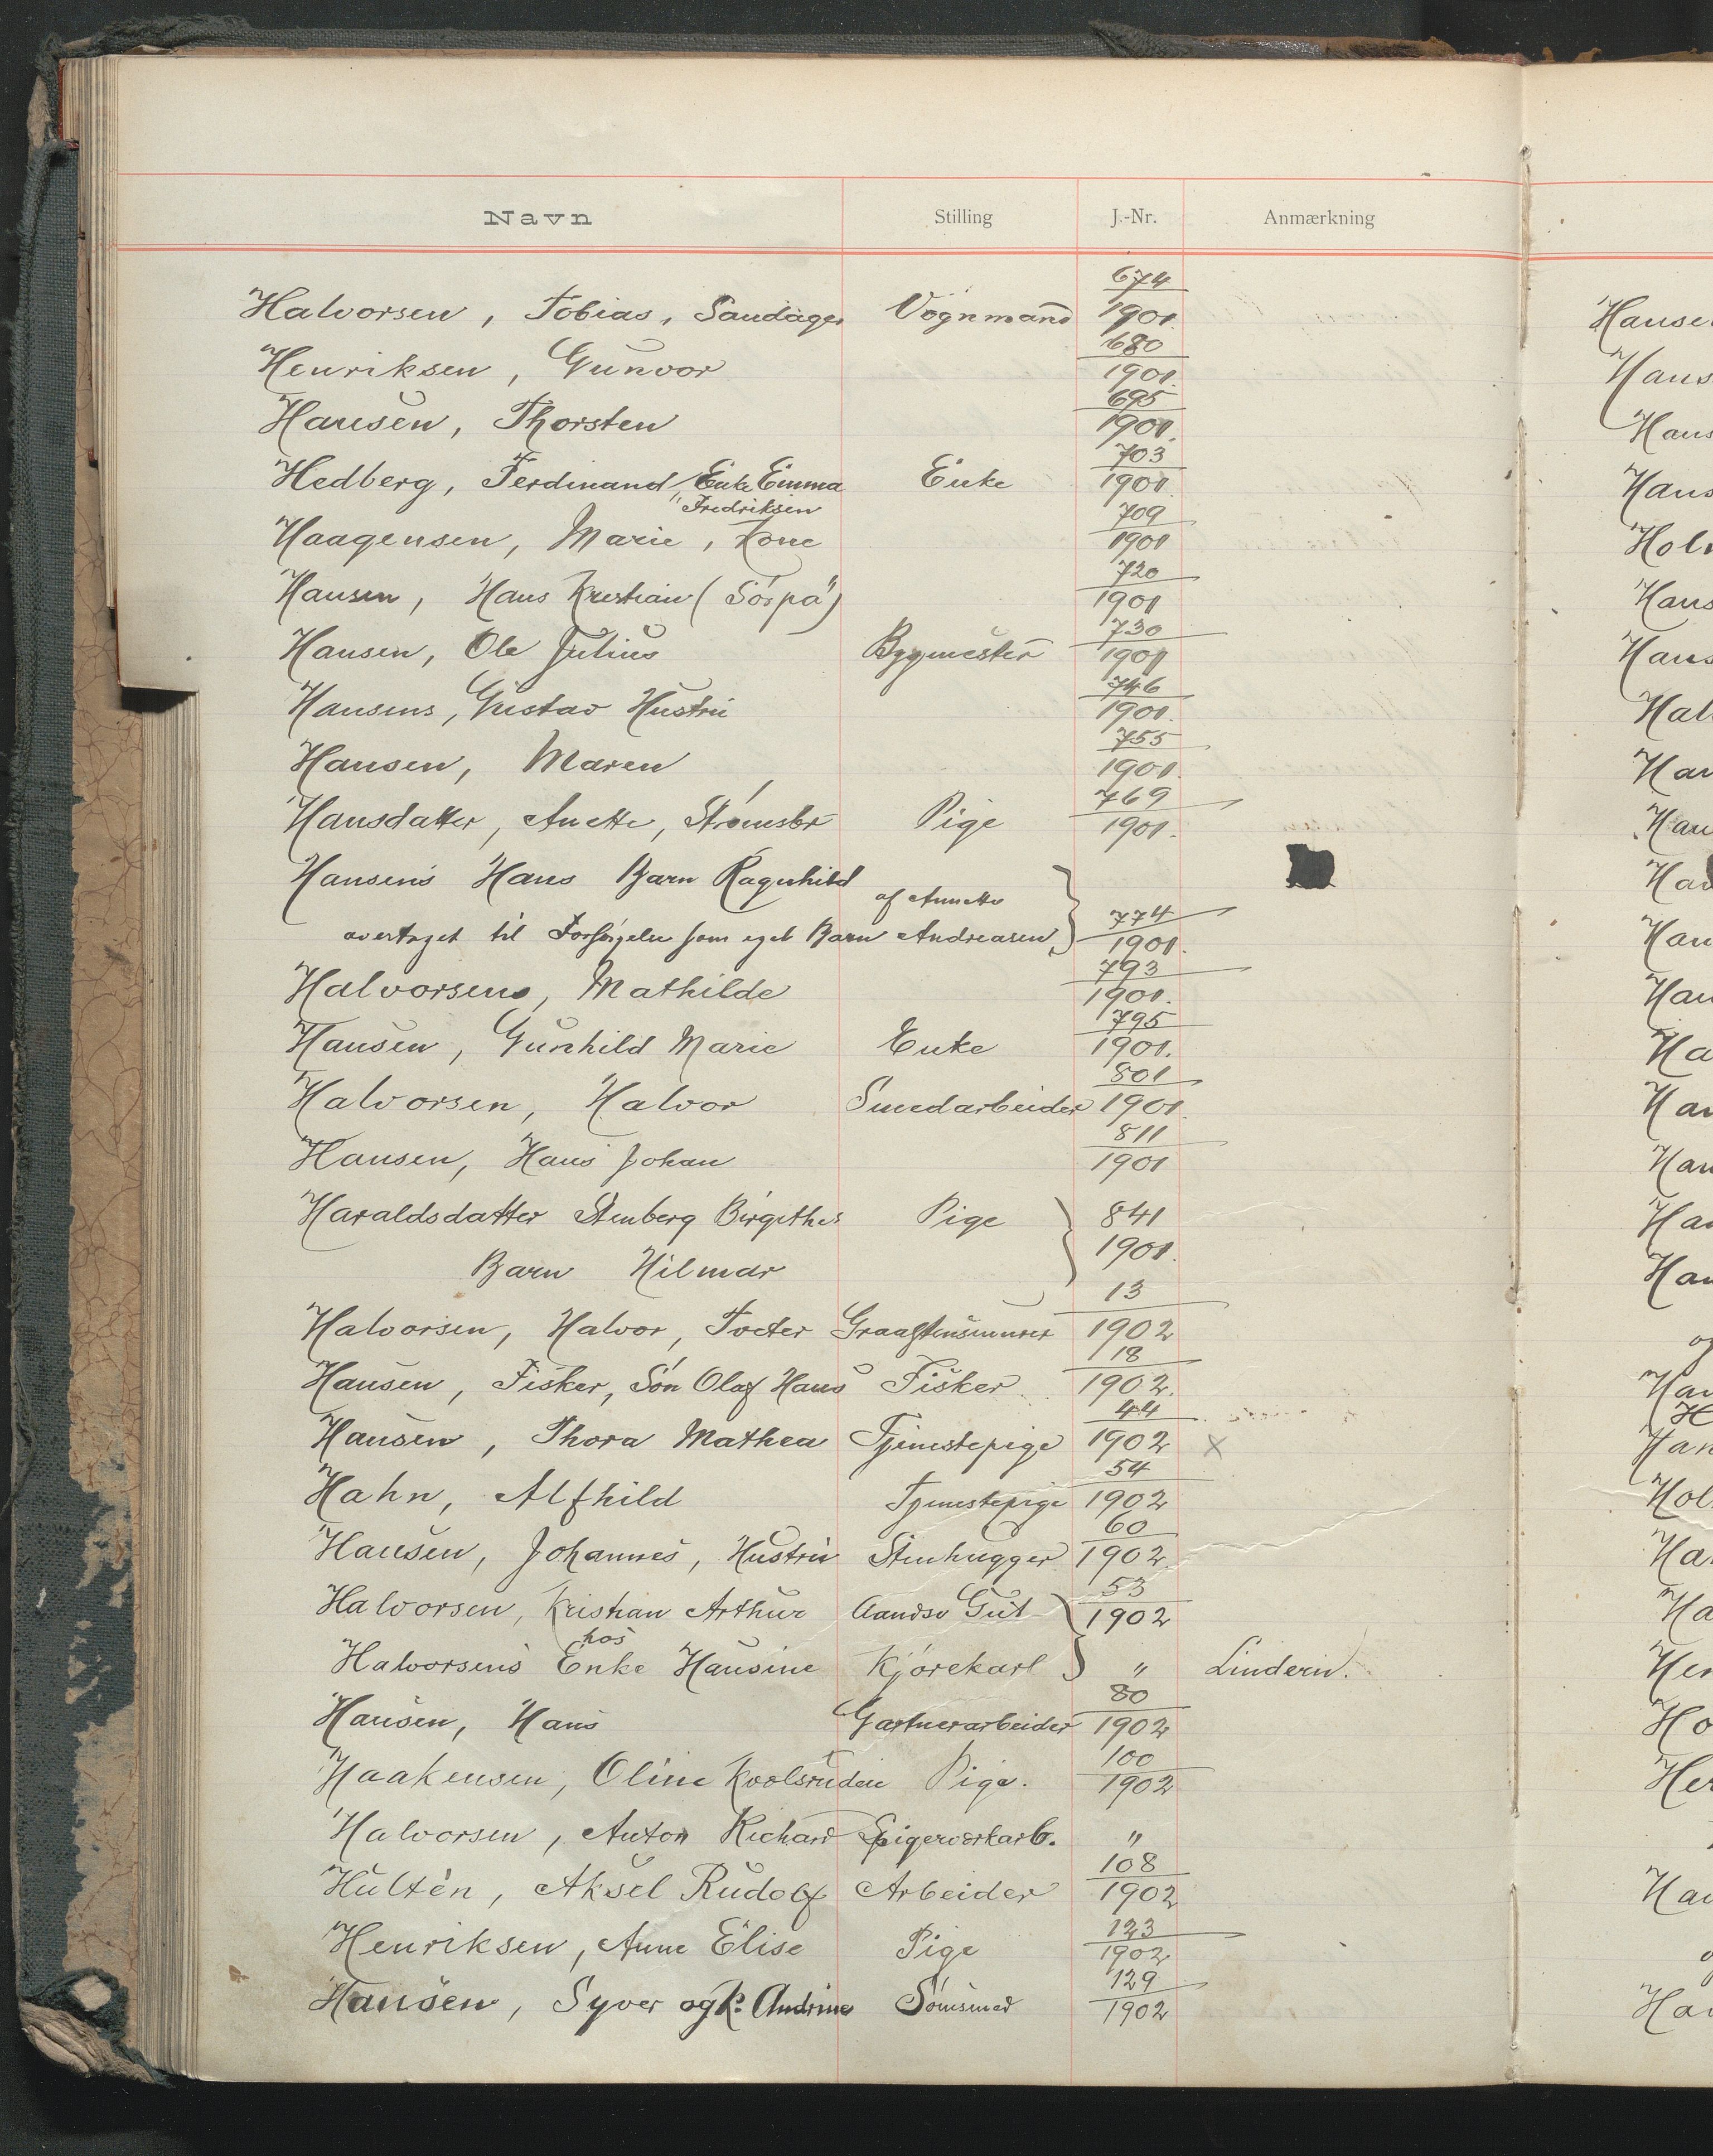 Navn Stilling J.-Nr. Anmærkning
674
Halvorsen, Tobias, Sandager Vognmand 1901.
680
Henriksen, Gunvor 1901.
695
Hansen, Thorsten 1901.
703
Hedberg, Ferdinand, Enke Emma Enke 1901
Fredriksen
709
Haagensen, Marie, Kone 1901
720
Hansen, Hans Kristian (Sörpa) 1901
730
Hansen, Ole Julius Bygmester 1901
746
Hansens, Gustav Hustru 1901.
755
Hansen, Maren 1901.
769
Hansdatter, Anette, Strömsbr Pige 1901.
Hansens Hans Barn Ragnhild
af Annette
774
overtaget til Forsörgelse som eget Barn Andreasen, 1901.
793
Halvorsens, Mathilde 1901.
795
Hansen, Gunhild Marie Enke 1901.
801
Halvorsen, Halvor Smedarbeider 1901.
811
Hansen, Hans Johan 1901
Haraldsdatter Stenberg Birgithes Pige 841
1901.
Barn Hilmar
13
Halvorsen, Halvor, Tveter Graastensmurer 1902
18
Hansen, Fisker, Sön Olaf Hans Fisker 1902.
44
Hansen, Thora Mathea Tjenestepige 1902 x
54
Hahn, Alfhild Tjenestepige 1902
60
Hansen, Johannes, Hustru Stenhugger 1902
53
Halvorsen, Kristian Arthur Aandsv Gut 1902
hos
Halvorsens Enke Hansine Kjörekarl " Lindern.
80
Hansen, Hans Gartnerarbeider 1902
100
Haakensen, Oline Pige. 1902
Halvorsen, Anton Richard Spigerverkarb. "
108
Hultén, Aksel Rudolf Arbeider 1902
123
Henriksen, Anne Elise Pige 1902
129
Hansen, Syver og K. Andrine Sömsmed 1902